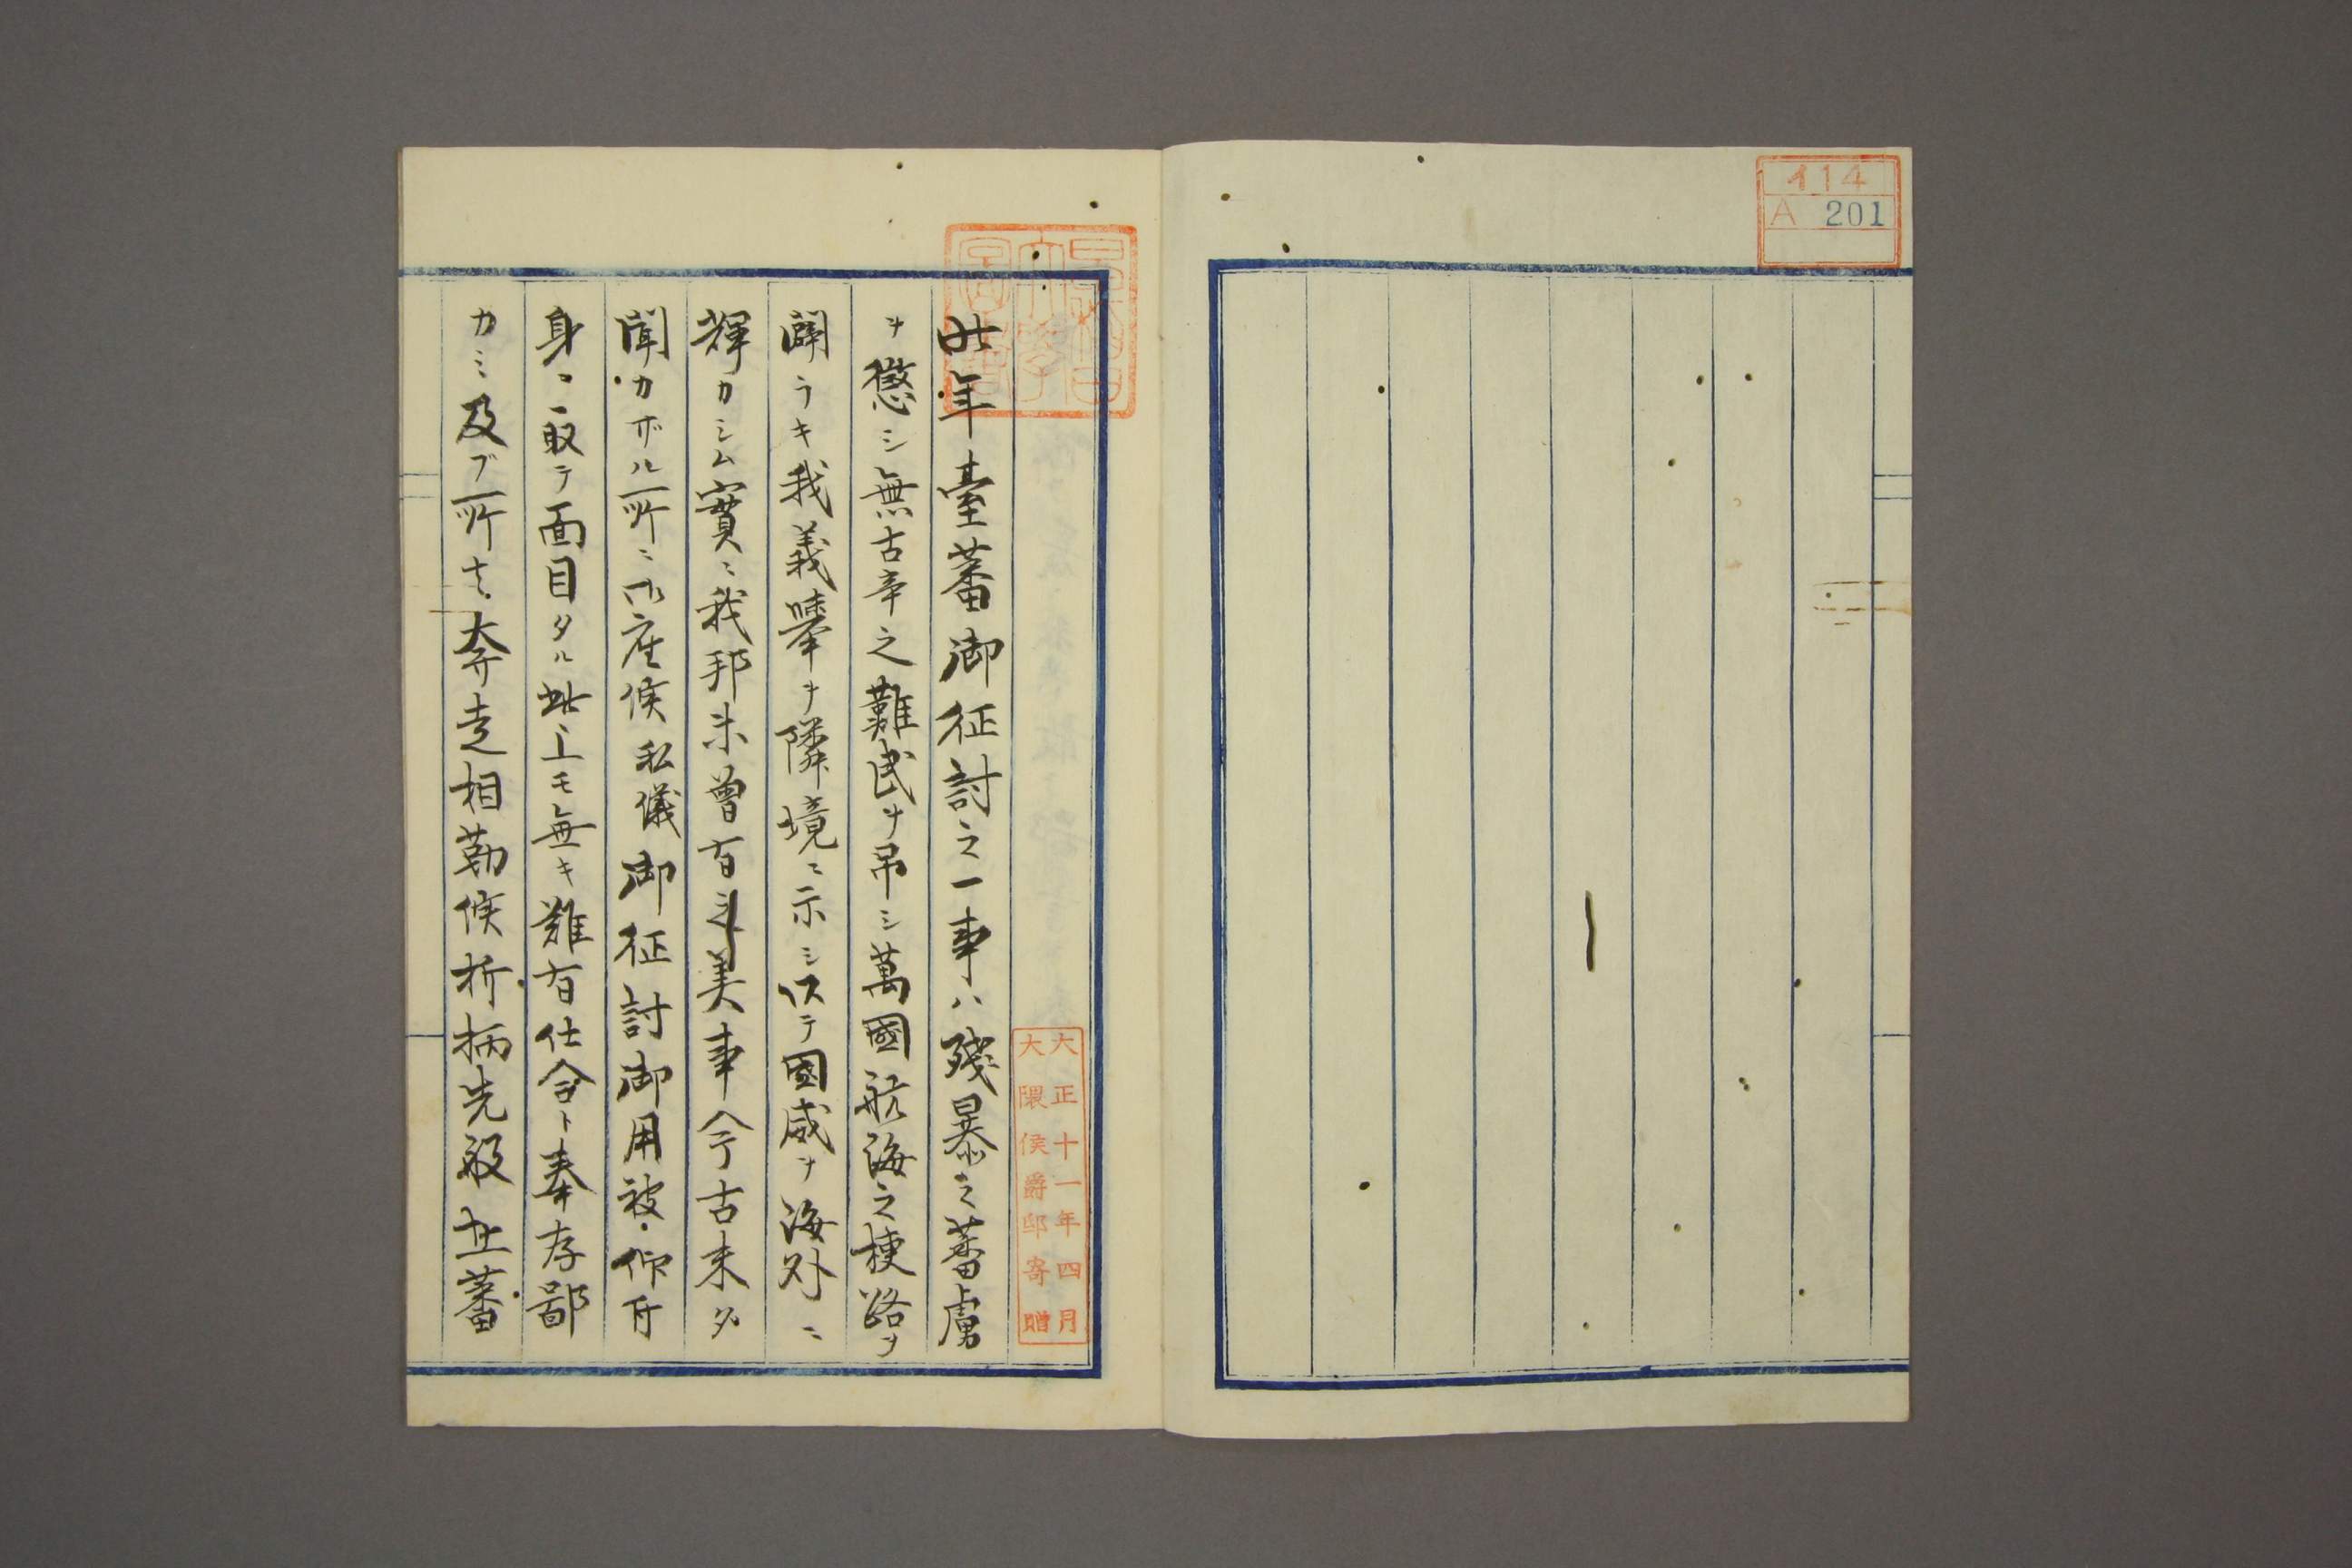 イ14
A 201
早稲田
大學
圖書
大正十一年四月
大隈侯爵邸寄贈
此年臺蕃御征討之一事ハ殘暴之蕃虜
ヲ懲シ無古辛之難民ヲ吊シ萬國航海之梗路ヲ
闢ラキ我義擧ヲ隣境ニ示シ以テ國威ヲ海外ニ
輝カシム實ニ我邦未曾有之美事今古未タ
聞カザル所ニ御座候私儀御征討御用被仰付
身ニ取テ面目タル此上モ無キ難有仕合ト奉存鄙
カミ及ブ所丈奔走相勤候折柄先般生蕃